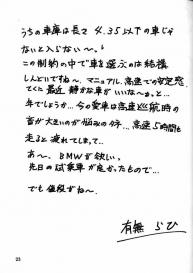 うちの車庫は長さ 4.35以下の車じゃ
ないと入らない〜。
この制約の中で車を選ぶのは結構
しんどいですね〜。マニュアル、高速での安定感、
てくに最近 静かな車がいいな〜。と、
年でしょうか…今の愛車は高速巡航時の
音が大きいのが悩みの種…高速5時間も
走ると 疲れてしまって…
あ〜、BMWが欲しい。
先日の試乗車が良かったもので…
でも値段がね〜
有無 らび
23